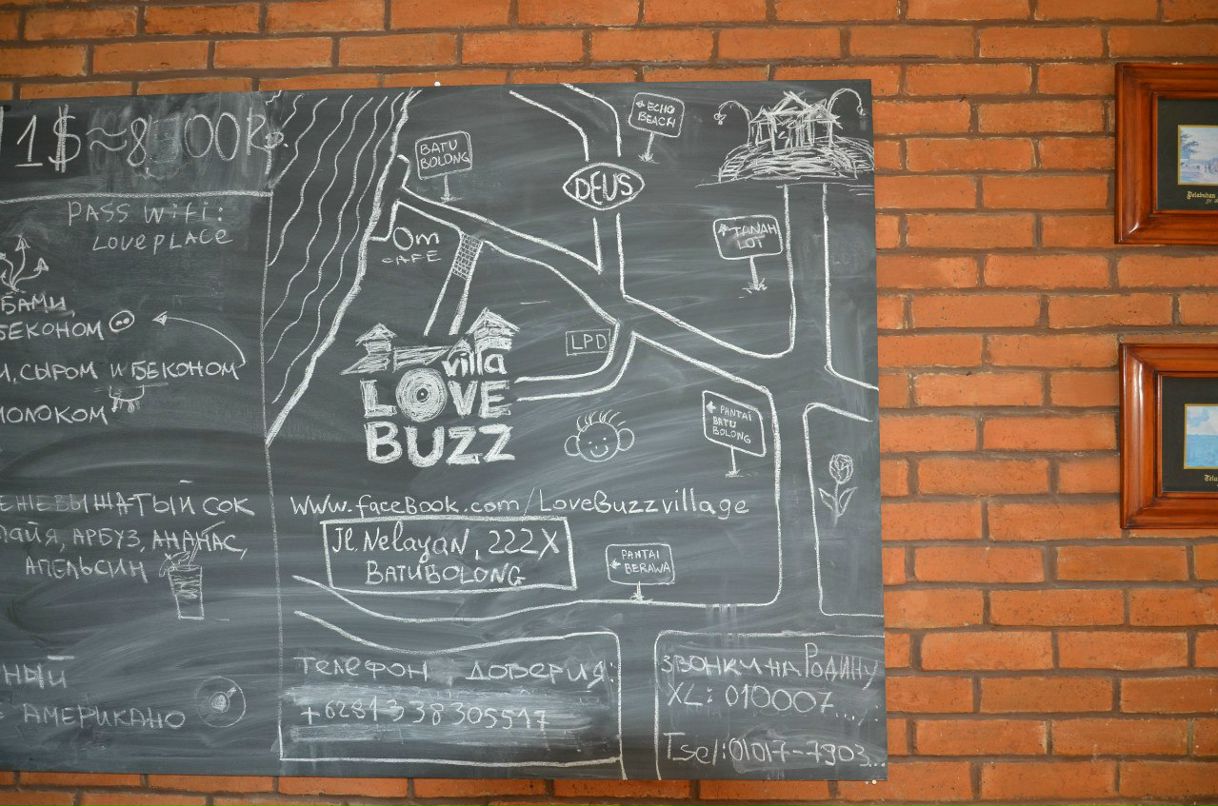 1$≈8 00R
PASS WiFi:
LOVEPLACE
БАМИ,
БЕКОНОМ
И, СЫРОМ И БЕКОНОМ
МОЛОКОМ
СОК
АРБУЗ, АНАНАС,
АПЕЛЬСИН
НЫЙ
АМЕРИКАНО
BATU
BOLONG
ECHO
BEACH
DEUS
Om
CAFE
TANAH
LOT
LPD
villa
LOVE
BUZZ
PANTAI
BATU
BOLONG
www.faceBook.com/LoveBuzzvillage
Jl. Nelayan, 222X
BATUBOLONG
PANTAI
BERAWA
ТЕЛЕФОН ДОВЕРИЯ:
+6281338305517
ЗВОНКИ НА РОДИНУ
XL: 010007...
Tsel: 01017-7903...
Pelabuhan